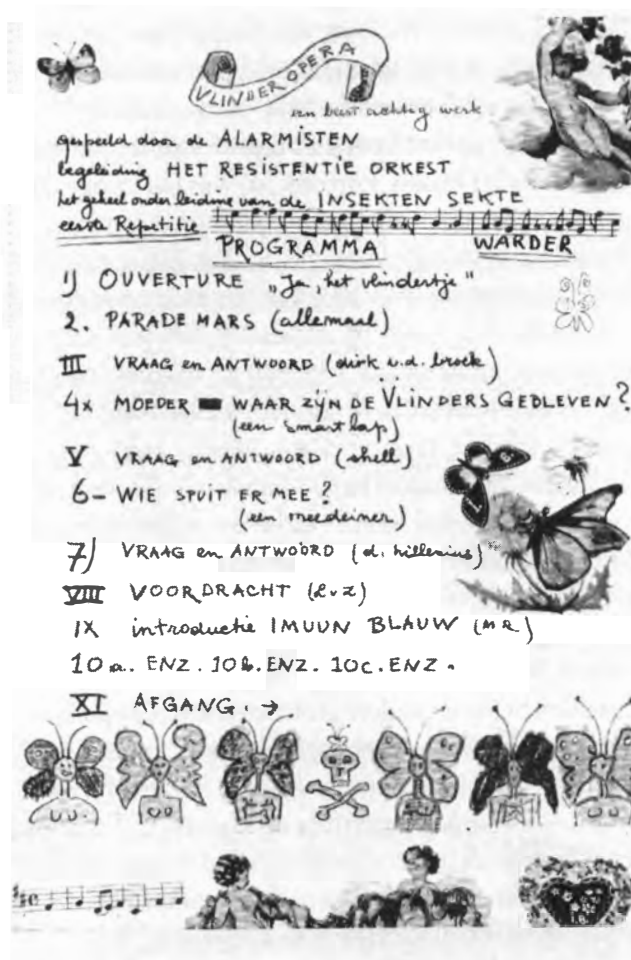 VLINDEROPERA
een beestachtig werk
gespeeld door de ALARMISTEN
begeleiding HET RESISTENTIE ORKEST
het geheel onder leiding van de INSEKTEN SEKTE
eerste Repetitie
PROGRAMMA WARDER
1) OUVERTURE „Ja, het vlindertje"
2. PARADE MARS (allemaal)
III VRAAG en ANTWOORD (dirk v.d. broek)
4x MOEDER WAAR ZIJN DE VLINDERS GEBLEVEN?
(een smartlap)
V VRAAG en ANTWOORD (shell)
6- WIE SPUIT ER MEE?
(een meedeiner)
7) VRAAG en ANTWOORD (d. hillenius)
VIII VOORDRACHT (L v Z)
IX introductie IMUUN BLAUW (M R)
10 a. ENZ. 10 b. ENZ. 10 c. ENZ.
XI AFGANG. →